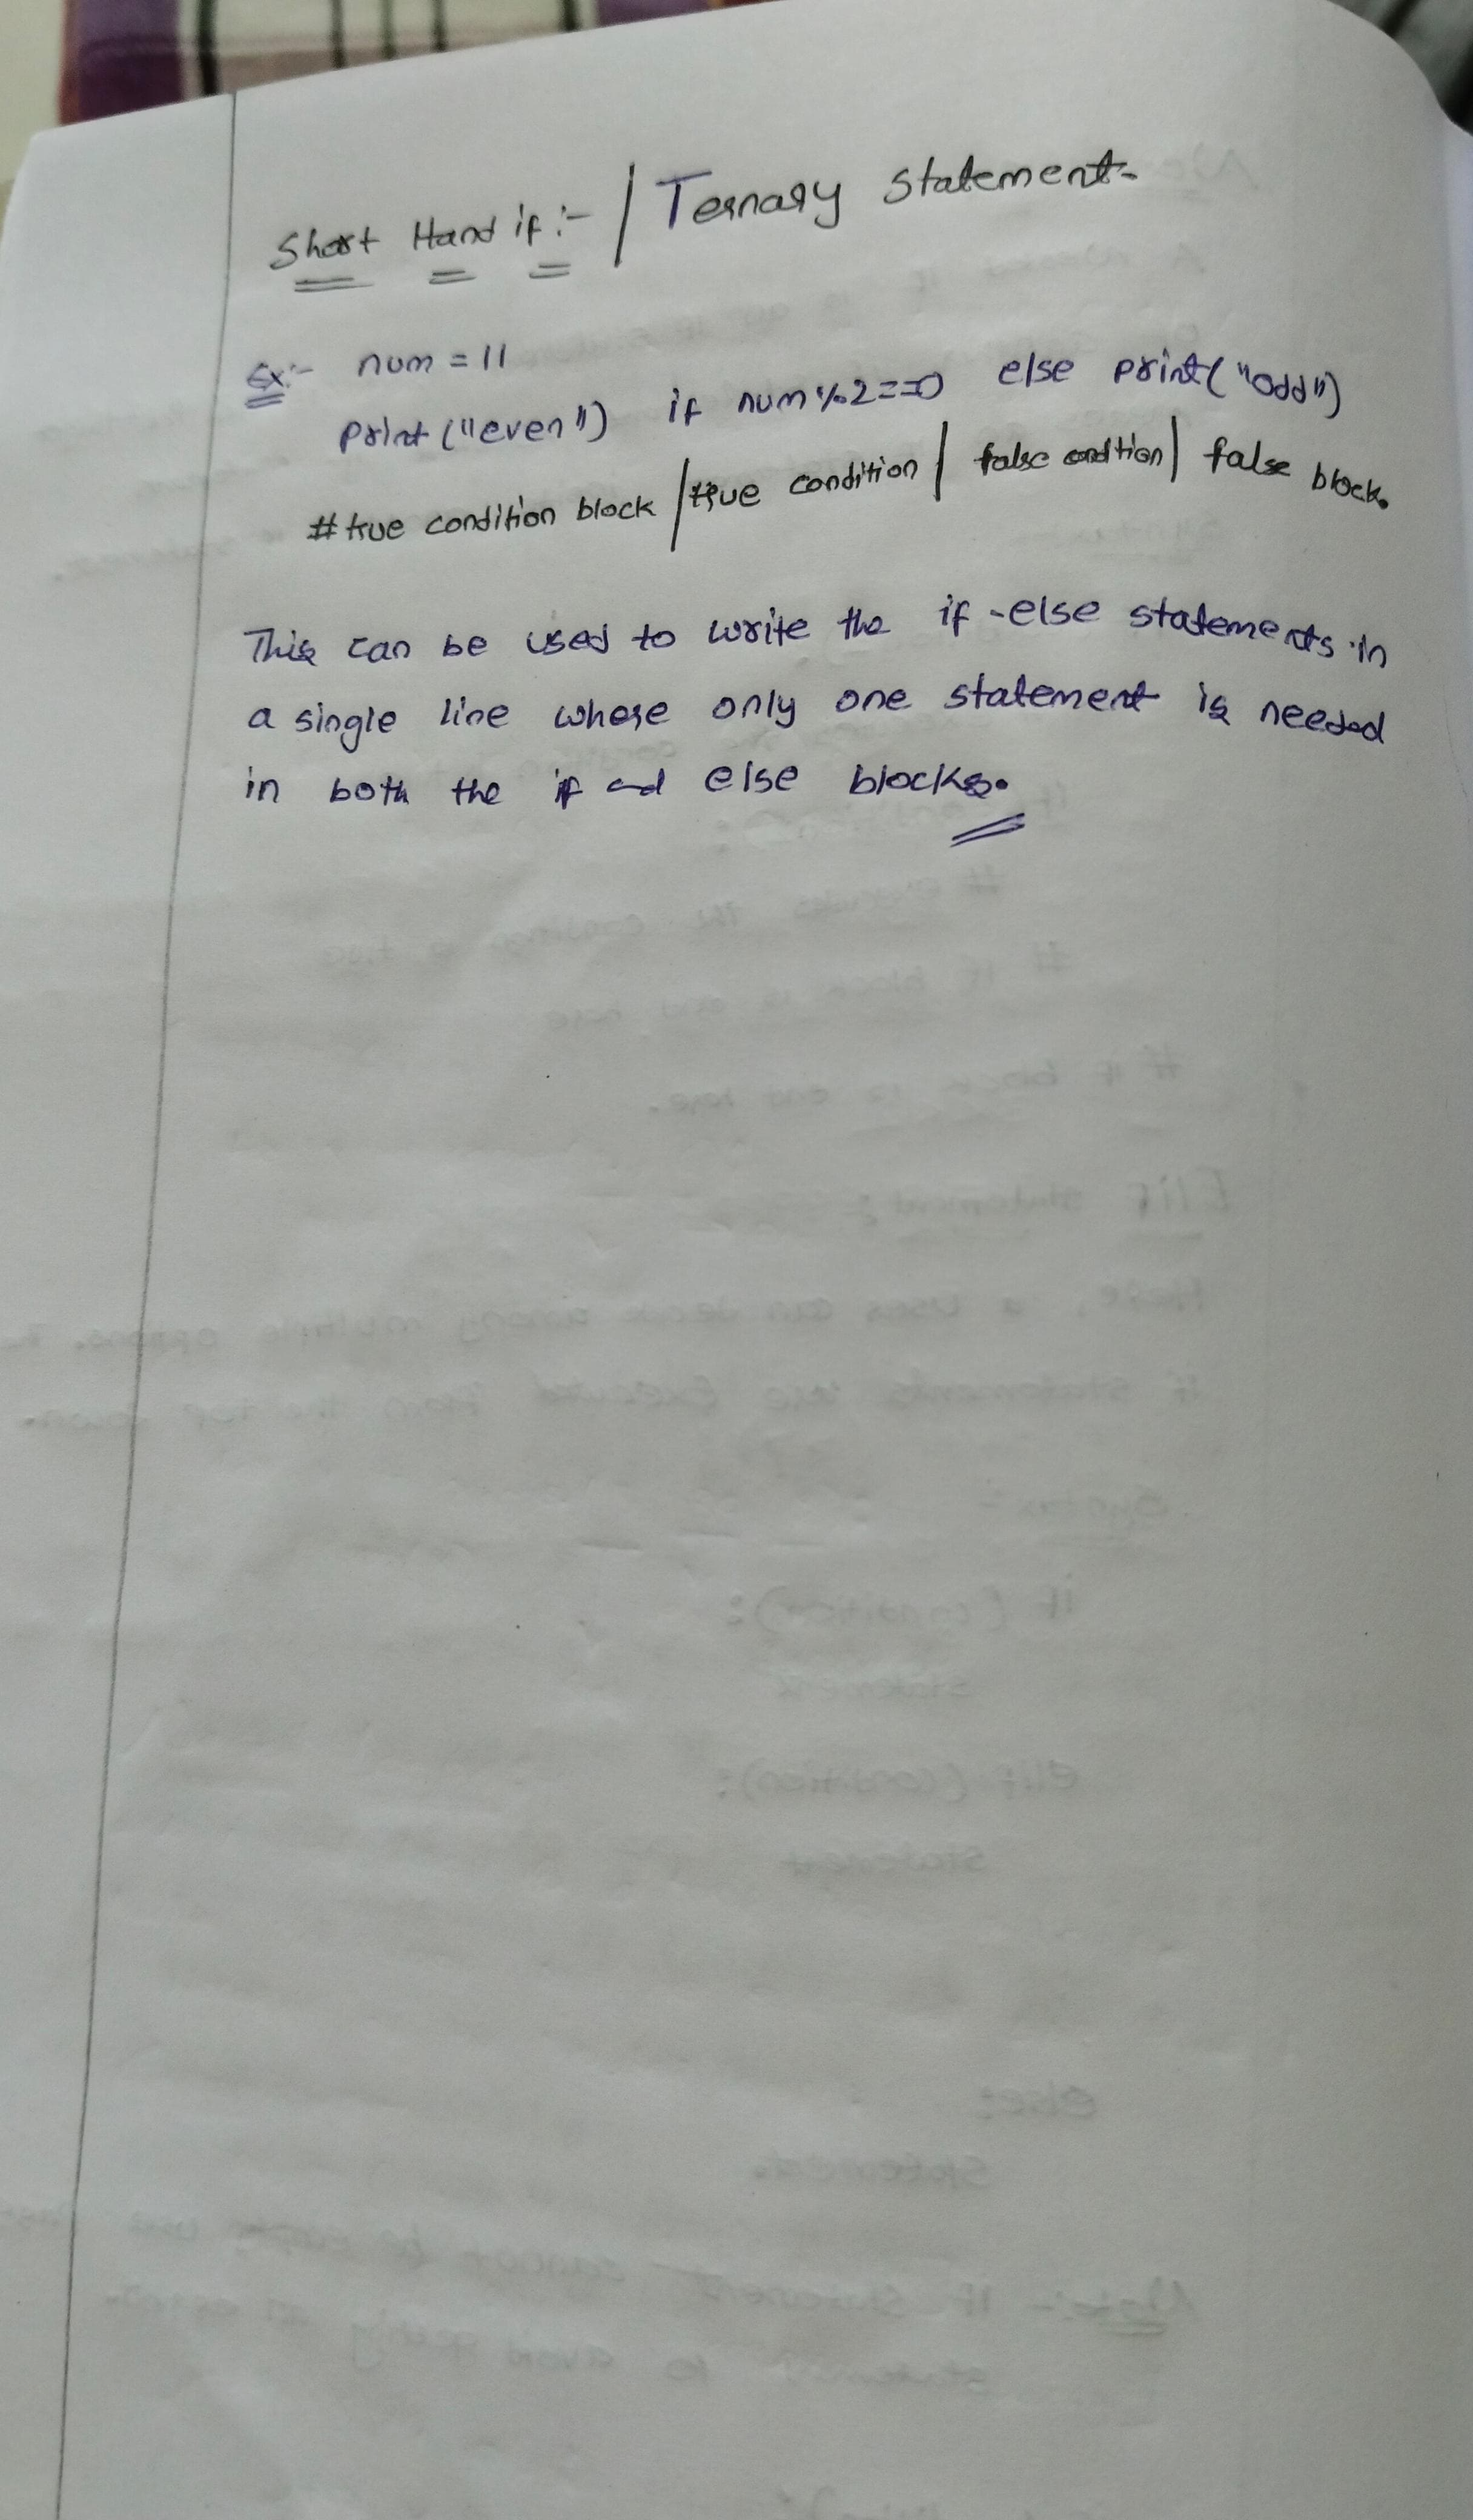 Short Hand if :- / Ternary Statement-
Ex:- num = 11
print ("even") if num%2==0 else print("odd")
# true condition block / true condition | false condtion | false block.
This can be used to write the if-else statements in
a single line where only one statement is needed
in both the if and else blocks.